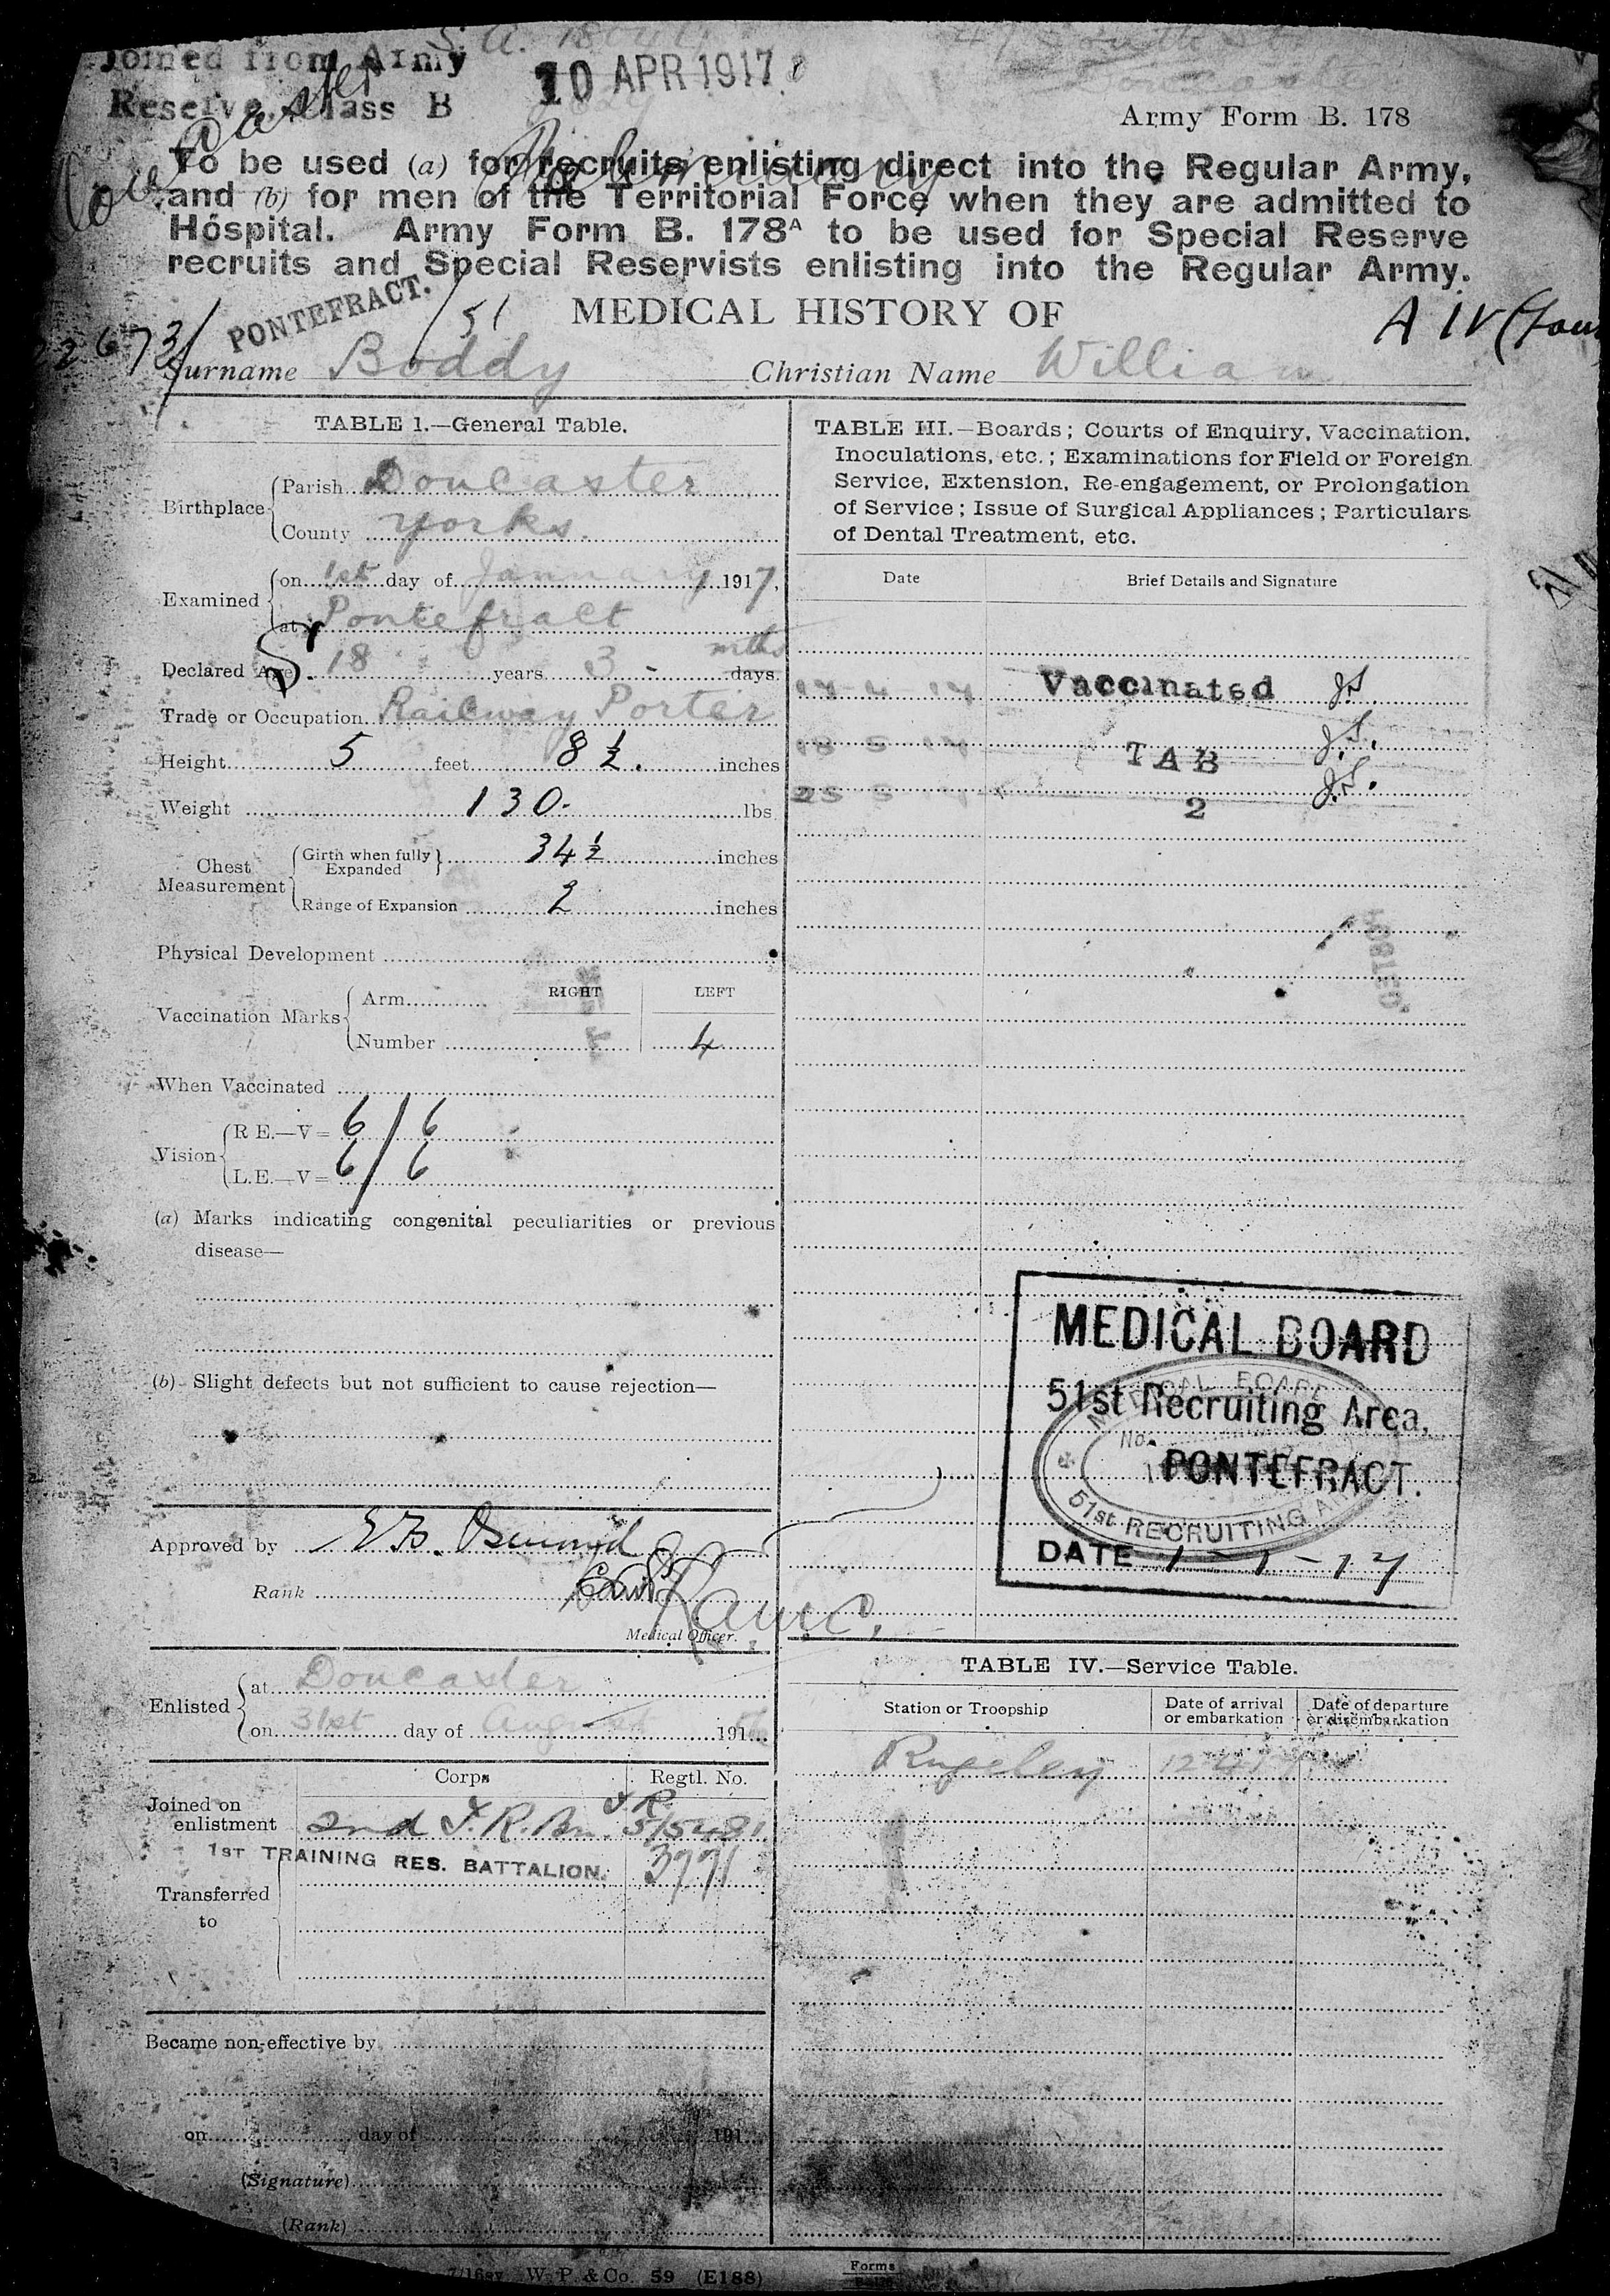 Joined from Army
Reserve, Class B
10 APR 1917
Doncaster
Army Form B. 178
To be used (a) for recruits enlisting direct into the Regular Army,
and (b) for men of the Territorial Force when they are admitted to
Hospital. Army Form B. 178A to be used for Special Reserve
recruits and Special Reservists enlisting into the Regular Army.
PONTEFRACT.
51
MEDICAL HISTORY OF
A IV (four
Surname Boddy Christian Name William
TABLE I.—General Table.
Birthplace
Parish Doncaster
County Yorks.
Examined
on 1st day of January 1917,
at Pontefract
Declared Age 18 years 3 - mths days.
Trade or Occupation Railway Porter
Height 5 feet 8 1/2. inches
Weight 130. lbs
Chest Measurement
Girth when fully Expanded 34 1/2 inches
Range of Expansion 2 inches
Physical Development
Vaccination Marks
Arm RIGHT LEFT
Number 4
When Vaccinated
Vision
R E.—V= 6/6
L.E.—V= 6/6
(a) Marks indicating congenital peculiarities or previous
disease—
(b) Slight defects but not sufficient to cause rejection—
Approved by
Rank
Medical Officer.
Enlisted
at Doncaster
on 31st day of August 191
Corps Regtl. No.
Joined on
enlistment 2nd T.R.Bn. T.R. 5/5481
1ST TRAINING RES. BATTALION. 3771
Transferred
to
Became non-effective by
on day of 191
(Signature)
(Rank)
TABLE III.—Boards; Courts of Enquiry, Vaccination,
Inoculations, etc.; Examinations for Field or Foreign
Service, Extension, Re-engagement, or Prolongation
of Service; Issue of Surgical Appliances; Particulars
of Dental Treatment, etc.
Date Brief Details and Signature
17-4-17 Vaccinated J.S.
18 5 17 TAB J.S.
25 5 17 2 J.S.
MEDICAL BOARD
51st Recruiting Area,
PONTEFRACT.
DATE 1-1-17
MEDICAL BOARD
No.
51st RECRUITING AREA
TABLE IV.—Service Table.
Station or Troopship
Date of arrival
or embarkation
Date of departure
or disembarkation
Rugeley 12-4-17
7/16sv W. P. & Co. 59 (E188)
Forms